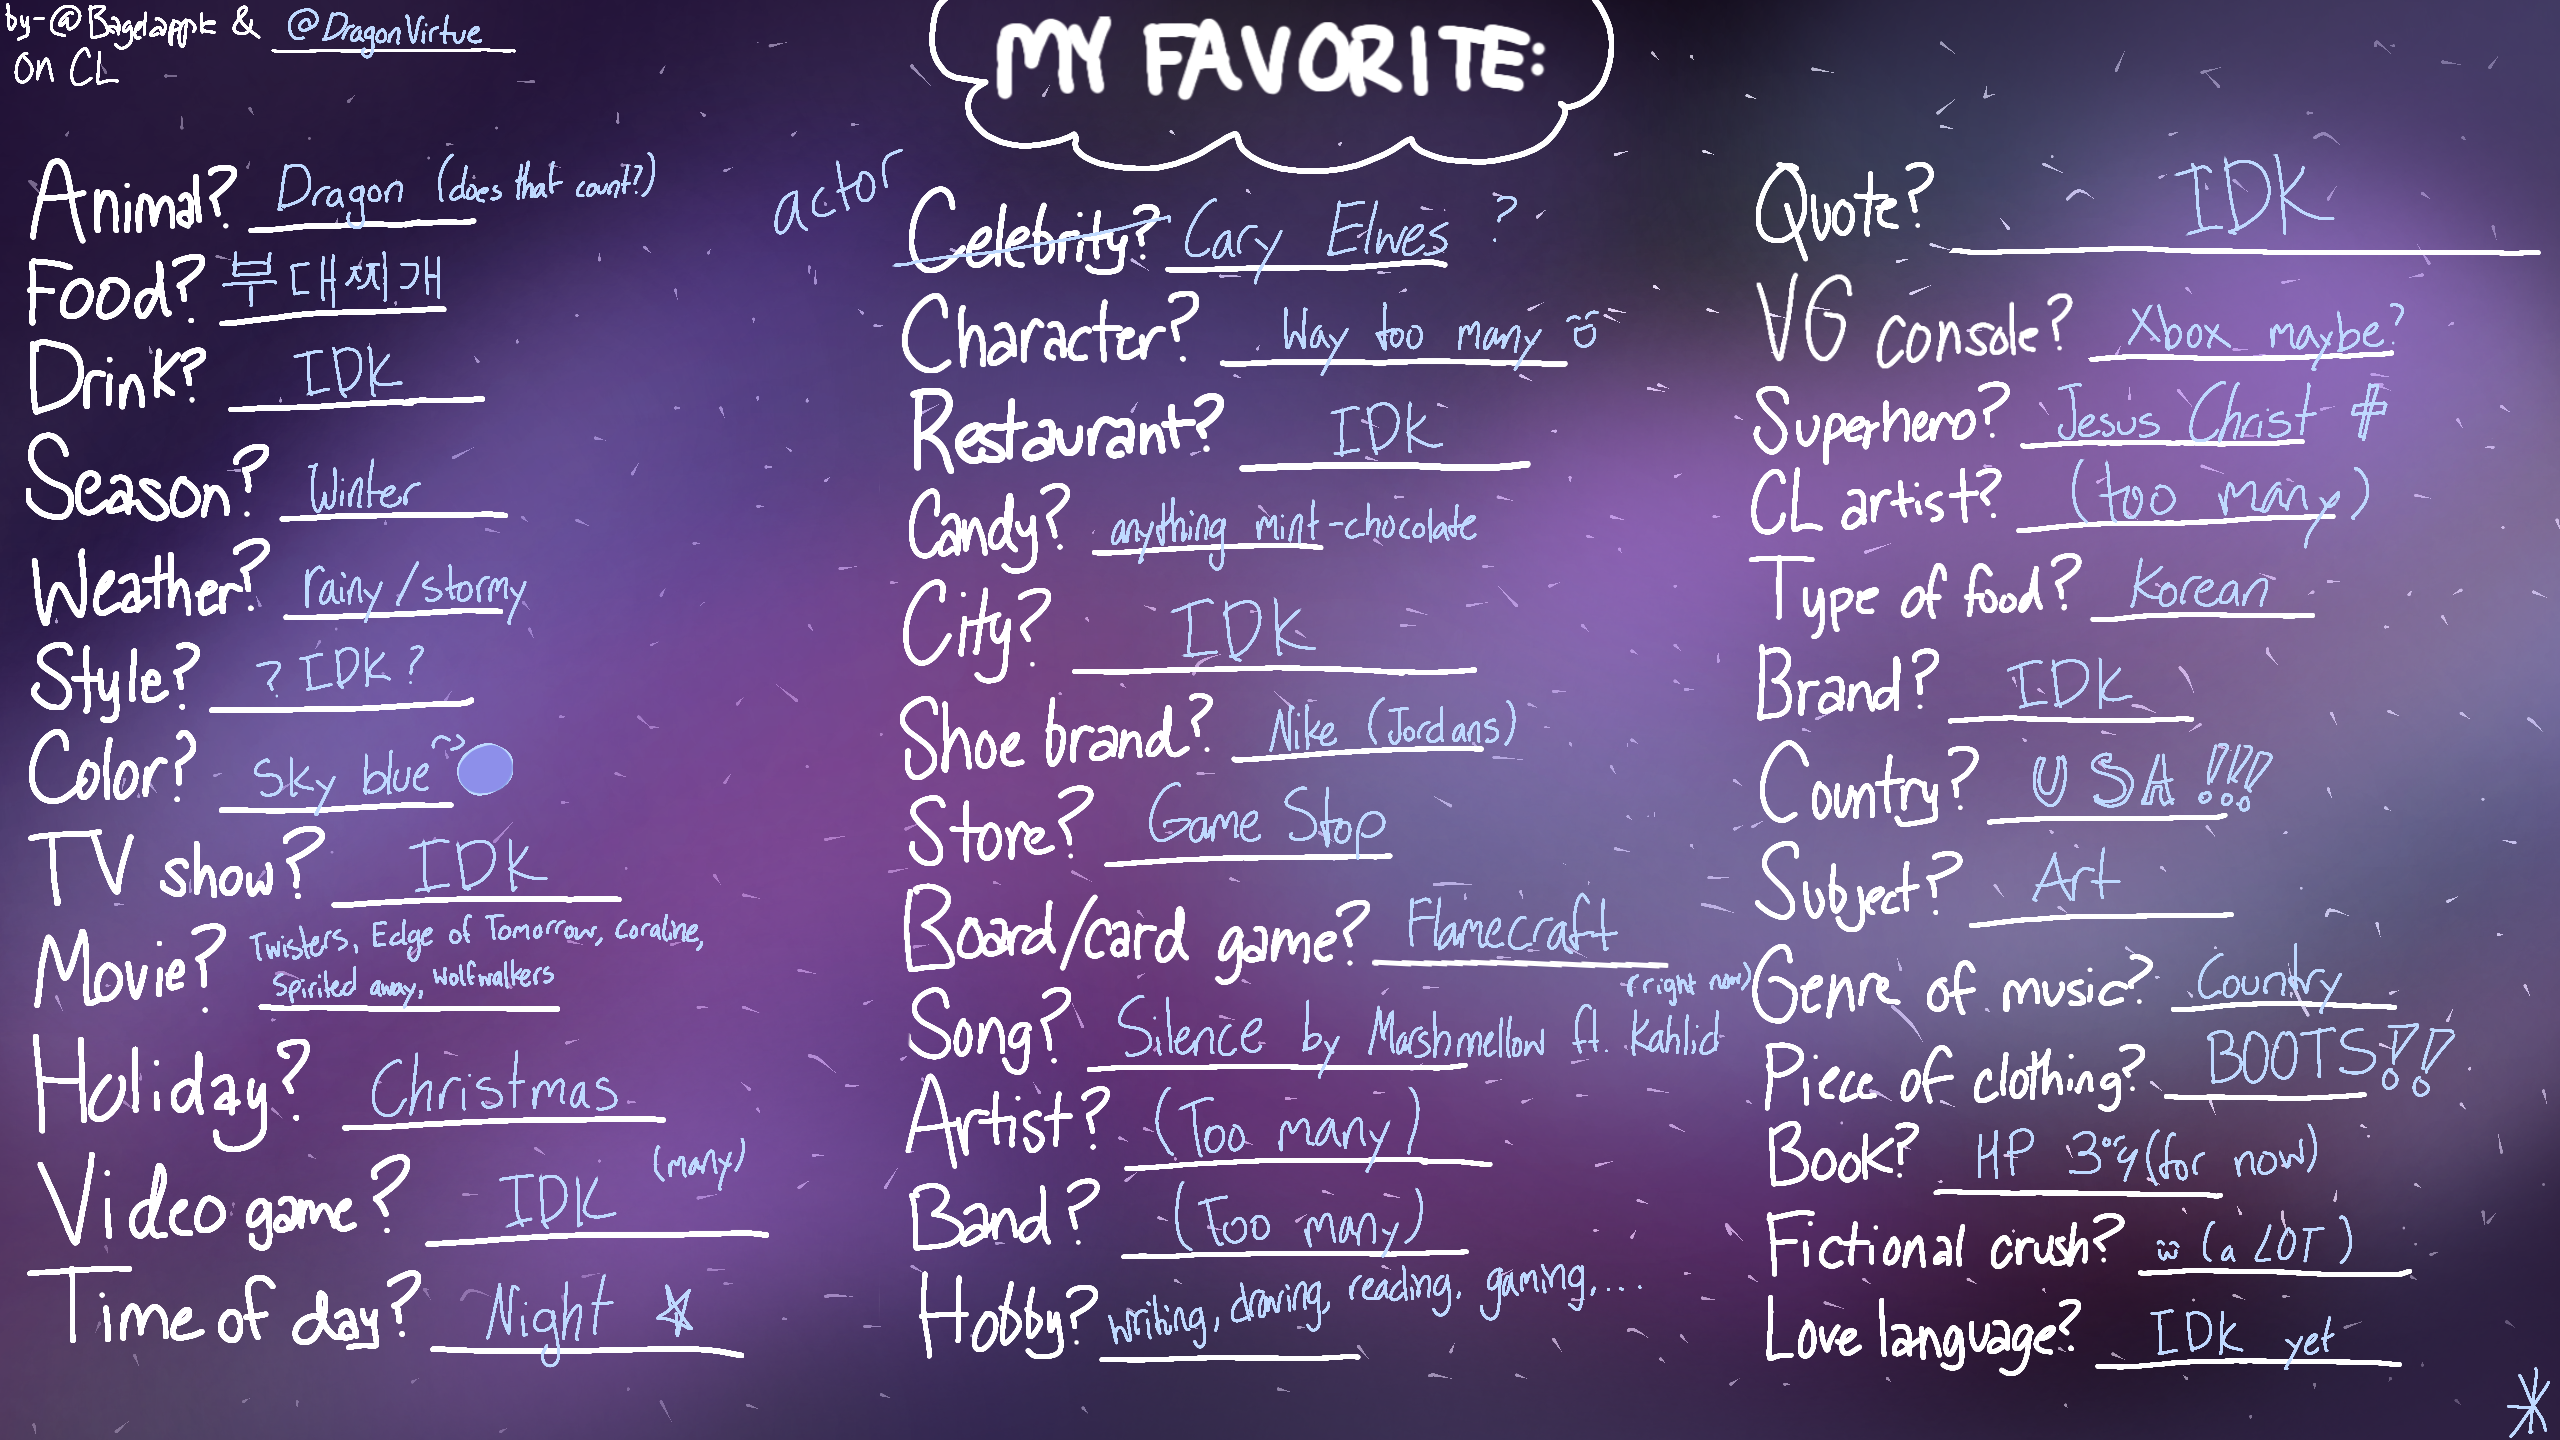 by-@Bagelappk & @DragonVirtue
on CL
MY FAVORITE:
Animal? Dragon (does that count?)
Food? 부대찌개
Drink? IDK
Season? Winter
Weather? rainy/stormy
Style? ? IDK ?
Color? Sky blue
TV show? IDK
Movie? Twisters, Edge of Tomorrow, Coraline,
Spirited away, Wolfwalkers
Holiday? Christmas
Video game? IDK (many)
Time of day? Night
actor
Celebrity? Cary Elwes ?
Character? Way too many
Restaurant? IDK
Candy? anything mint-chocolate
City? IDK
Shoe brand? Nike (Jordans)
Store? Game Stop
Board/card game? Flamecraft
(right now)
Song? Silence by Marshmellow ft. Kahlid
Artist? (Too many)
Band? (Too many)
Hobby? writing, drawing, reading, gaming,...
Quote? IDK
VG console? Xbox maybe?
Superhero? Jesus Christ
CL artist? (too many)
Type of food? Korean
Brand? IDK
Country? USA!!!
Subject? Art
Genre of music? Country
Piece of clothing? BOOTS!!
Book? HP 3 or 4 (for now)
Fictional crush? (a LOT)
Love language? IDK yet